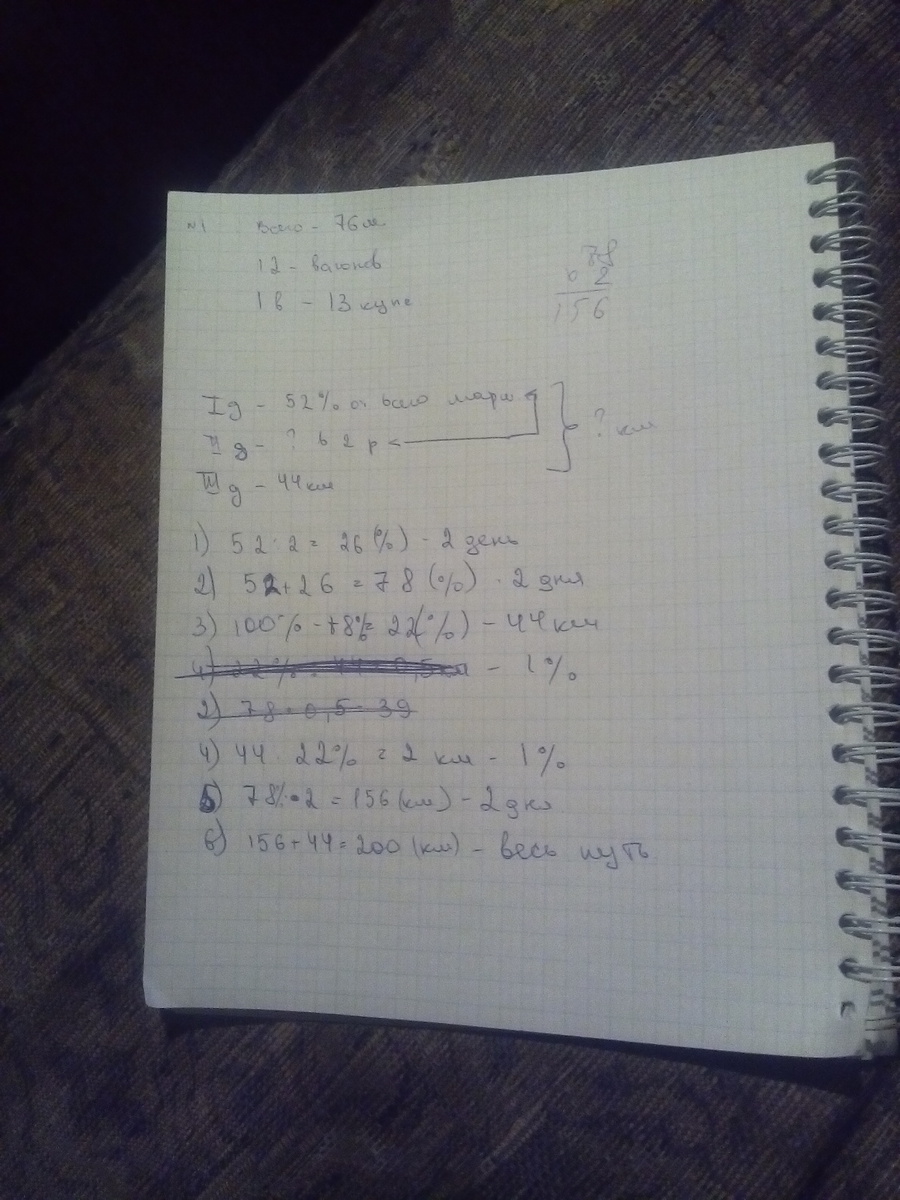 №1 Всего - 76 м
12 - вагонов
1 в - 13 купе
78
2
156
I д - 52% от всего марш
II д - ? в 2 р
? км
III д - 44 км
1) 52 : 2 = 26 (%) - 2 день
2) 52 + 26 = 78 (%) - 2 дня
3) 100% - 78% = 22 (%) - 44 км
4) 22% : 44 = 0,5 км - 1%
2) 78 · 0,5 = 39
4) 44 : 22% = 2 км - 1%
5) 78% · 2 = 156 (км) - 2 дня
6) 156 + 44 = 200 (км) - весь путь